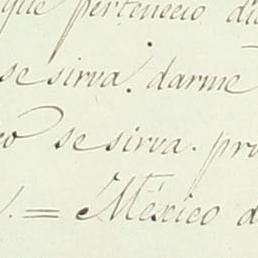 que perteneció
se sirva. darme
se sirva.
= México d